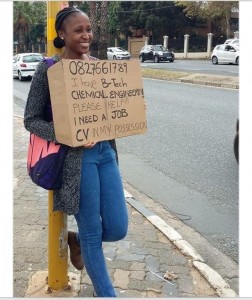 0827661787
I have B-Tech
CHEMICAL ENGINEERING
PLEASE HELP!!
I NEED A JOB
CV IN MY POSSESSION